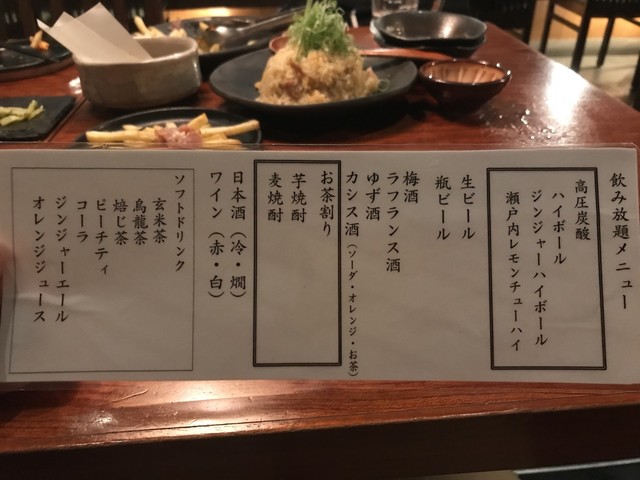 飲み放題メニュー
高圧炭酸
ハイボール
ジンジャーハイボール
瀬戸内レモンチューハイ
生ビール
瓶ビール
梅酒
ラフランス酒
ゆず酒
カシス酒（ソーダ・オレンジ・お茶）
お茶割り
芋焼酎
麦焼酎
日本酒（冷・燗）
ワイン（赤・白）
ソフトドリンク
玄米茶
烏龍茶
焙じ茶
ピーチティ
コーラ
ジンジャーエール
オレンジジュース